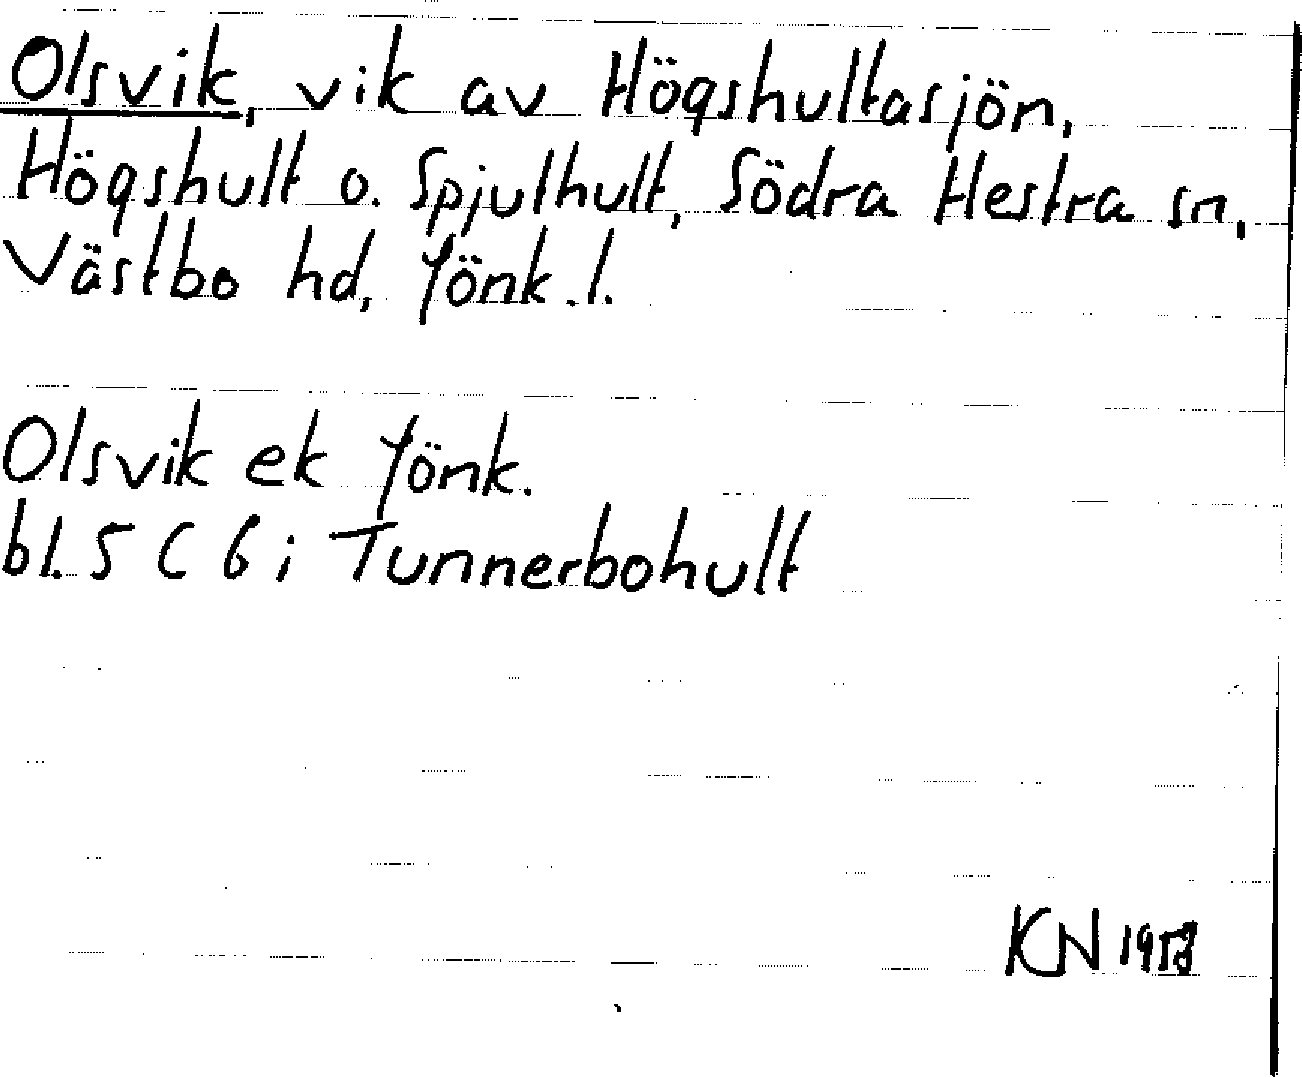 Olsvik, vik av Högshultasjön,
Högshult o. Spjuthult, Södra Hestra sn,
Västbo hd, Jönk.l.
Olsvik ek Jönk.
bl. 5 C 6 i Tunnerbohult
KN